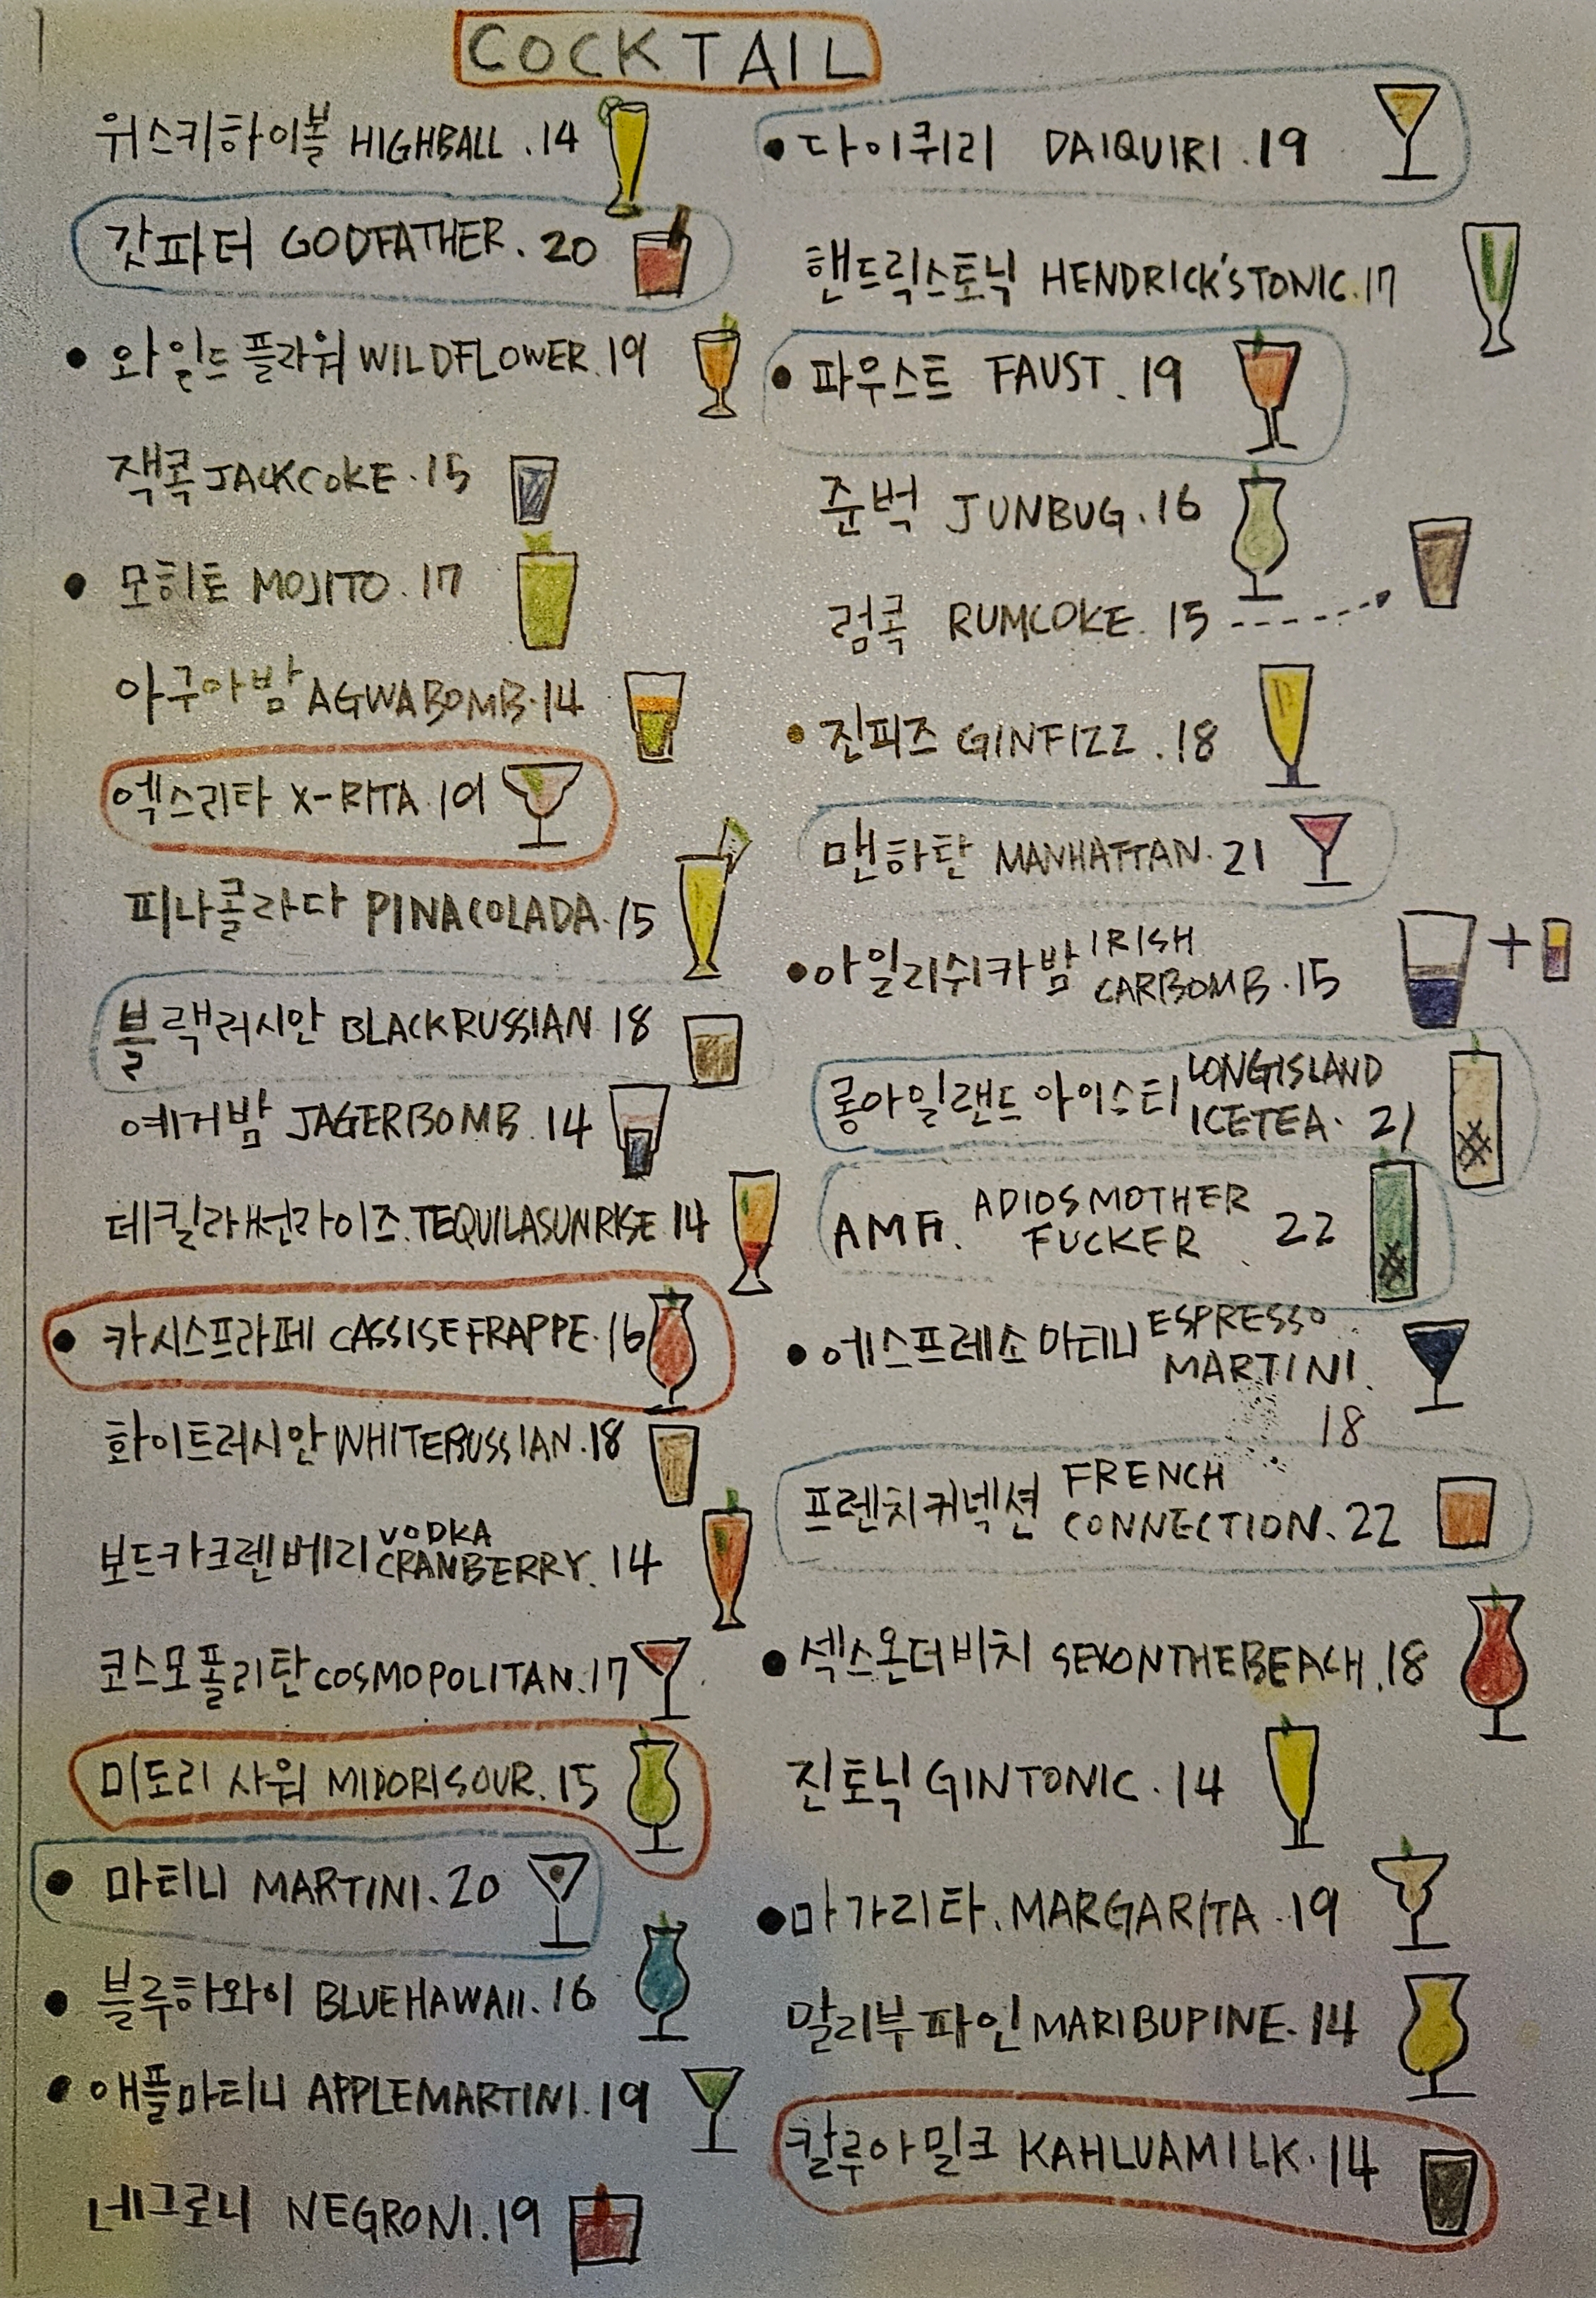 COCKTAIL
위스키하이볼 HIGHBALL .14
갓파더 GODFATHER. 20
• 와일드플라워 WILDFLOWER.19
잭콕 JACKCOKE.15
• 모히토 MOJITO.17
아구아밤 AGWABOMB.14
엑스리타 X-RITA.19
피나콜라다 PINACOLADA.15
블랙러시안 BLACKRUSSIAN 18
예거밤 JAGERBOMB.14
데킬라썬라이즈.TEQUILASUNRISE 14
• 카시스프라페 CASSISEFRAPPE.16
화이트러시안 WHITERUSSIAN.18
보드카크렌베리 VODKA
CRANBERRY. 14
코스모폴리탄 COSMOPOLITAN.17
미도리 사워 MIDORISOUR.15
• 마티니 MARTINI.20
• 블루하와이 BLUEHAWAII.16
• 애플마티니 APPLEMARTINI.19
네그로니 NEGRONI.19
• 다이퀴리 DAIQUIRI.19
핸드릭스토닉 HENDRICK'STONIC.17
• 파우스트 FAUST.19
준벅 JUNBUG.16
럼콕 RUMCOKE. 15
• 진피즈 GINFIZZ .18
맨하탄 MANHATTAN. 21
• 아일리쉬카밤 IRISH
CARBOMB.15
+
롱아일랜드 아이스티 LONGISLAND
ICETEA. 21
AMF. ADIOS MOTHER
FUCKER 22
• 에스프레소 마티니 ESPRESSO
MARTINI.
18
프렌치커넥션 FRENCH
CONNECTION. 22
• 섹스온더비치 SEXONTHEBEACH.18
진토닉 GINTONIC.14
• 마가리타. MARGARITA.19
말리부파인 MARIBUPINE.14
칼루아밀크 KAHLUAMILK.14